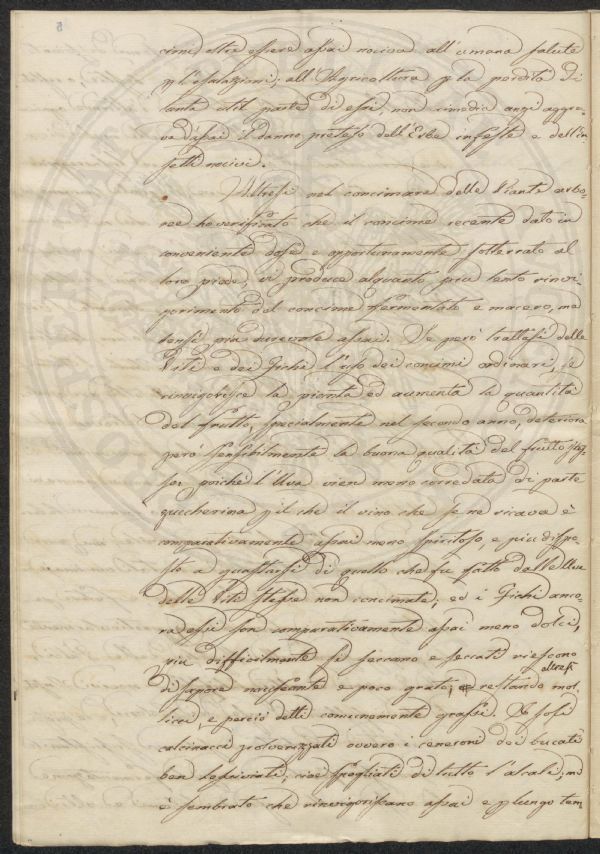 5
cime oltre essere assai nociva all'umana salute
p l'esalazioni, all'Agricoltura p la perdita di
tanta util parte di essi, non rimedia anzi aggre-
va d'assai il danno preteso dell'Erbe infeste e dell'in-
setti nocivi.
Altresì nel concimare delle Piante arbo-
ree ho verificato che il concime recente dato in
conveniente dose e opportunamente sotterrato al
loro piede, vi produce alquanto più lento rinvi-
gorimento del concime fermentato e macero, ma
bensì più durevole assai. Se però trattasi delle
Viti e dei Fichi l'uso dei concimi ordinarj, se
rinvigorisce la pianta ed aumenta la quantità
del frutto, specialmente nel secondo anno, deteriora
però sensibilmente la buona qualità del frutto stes-
so, poiche l'Uva vien meno corredata di parte
zuccherina p il che il vino che se ne ricava è
comparativamente assai meno spiritoso, e più dispo-
sto a guastarsi di quello che fu fatto dalle Uve
delle Viti stesse non concimate, ed i Fichi anco-
ra essi son comparativamente assai meno dolci,
più difficilmente si serrano e seccati riescono
altresì
di sapore nauseante e poco grato, restando mol-
licci, e perciò detti comunemente grassi. I soli
calcinacci polverizzati ovvero i ceneroni dei bucati
ben lisciviati, cioè spogliati di tutto l'alcali, mi
è sembrato che rinvigoriscano assai e p lungo tem